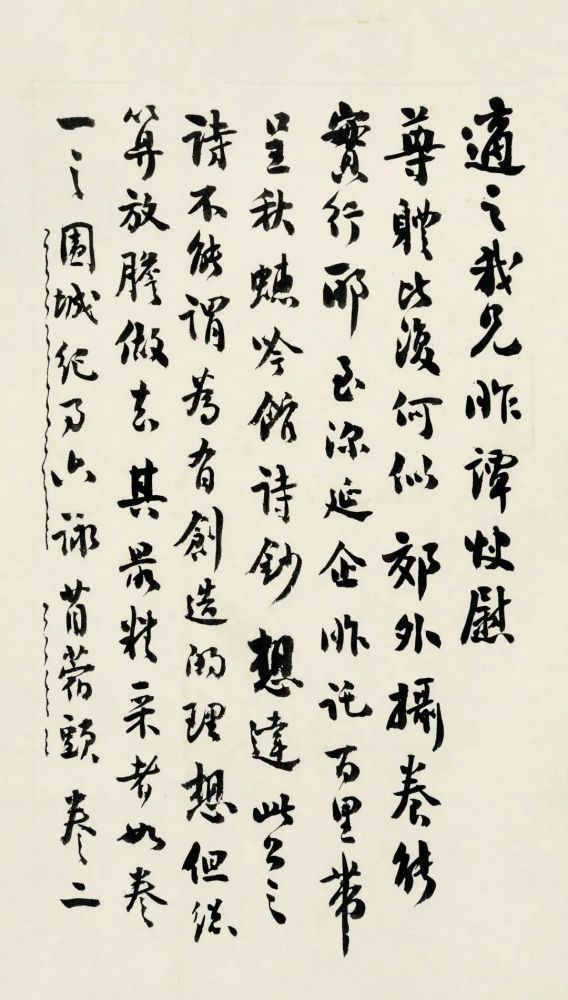 適之我兄昨譚快慰
尊體比復何似郊外攝養能
實行耶至深延企昨託百里帶
呈秋蟪吟館詩鈔想達此公之
詩不能謂為有創造的理想但總
算放膽做去其最精采者如卷
一之圍城紀事六詠苜蓿頭卷二